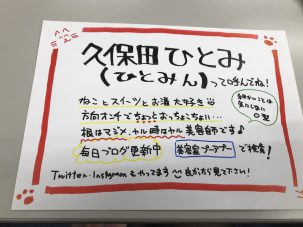 久保田ひとみ
(ひとみん)って呼んでね!
ねことスイーツとお酒 大好き
方向オンチでちょっとおっちょこちょい…
根はマジメ、ヤル時はヤル美容師です♪
細かいことは
気にしない
O型
毎日ブログ更新中
美容室プープープー で検索!
Twitter・Instagramもやってます 良かったら見て下さい!